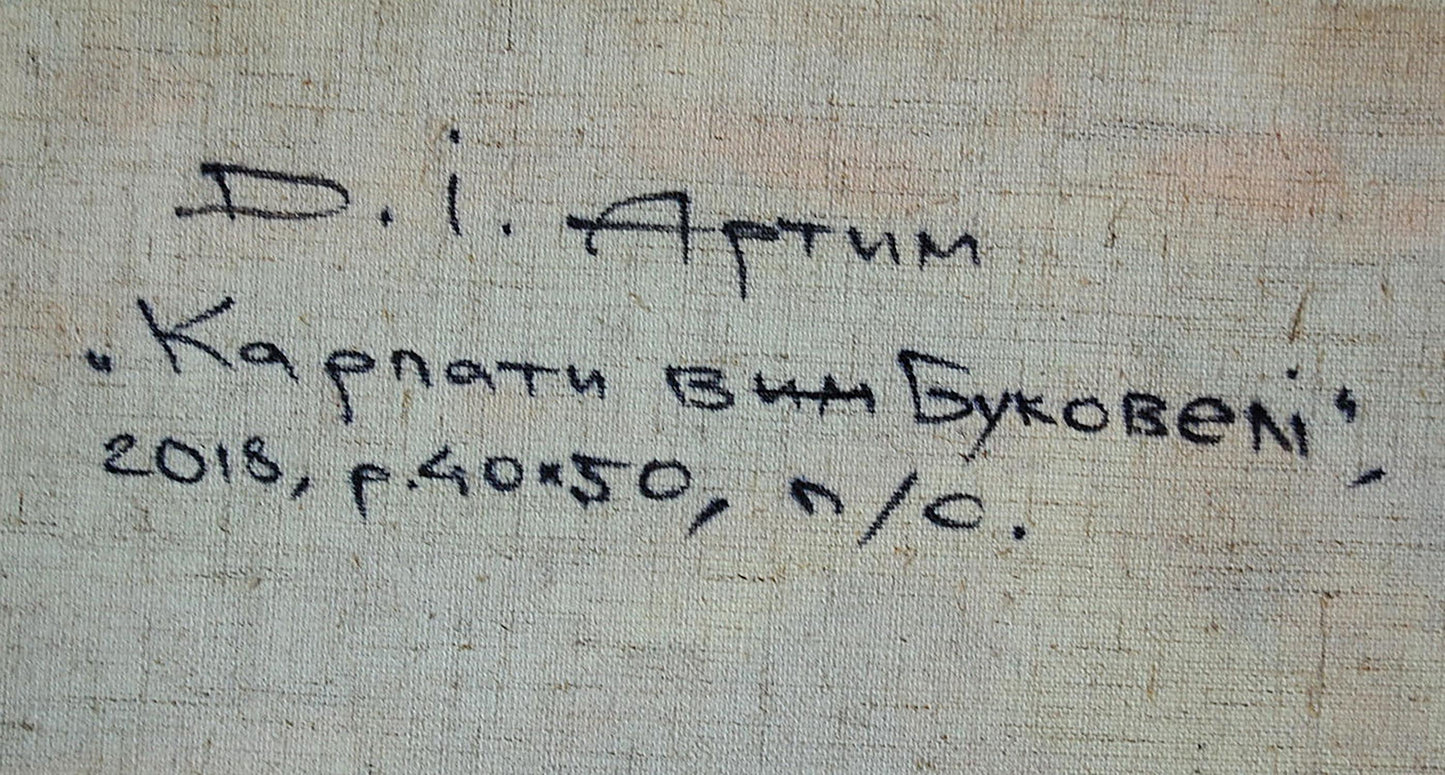 Д. І. Артим
"Карпати вим Буковелі",
2018, р. 40×50, п/о.